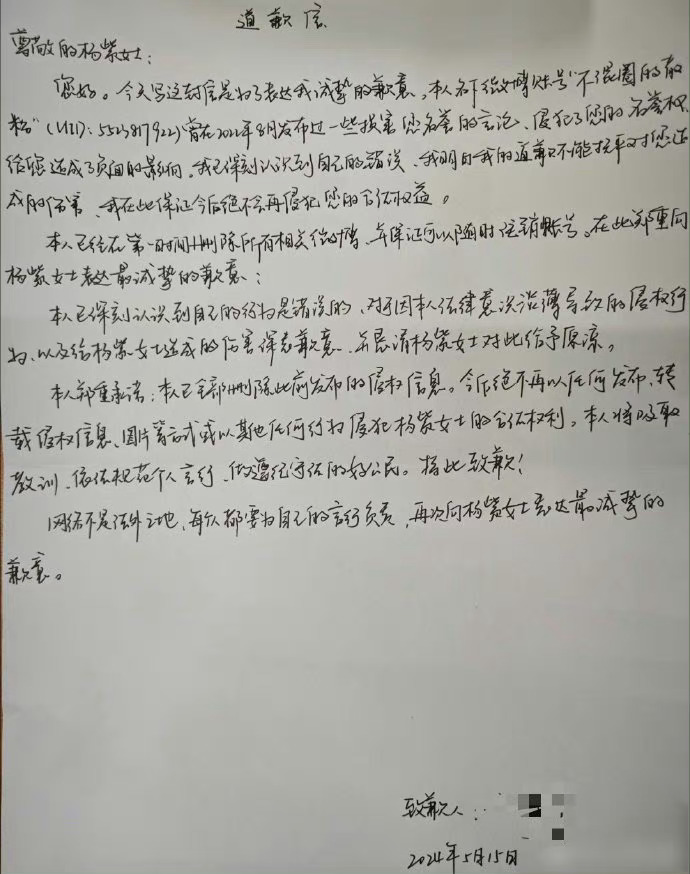 道歉信
尊敬的杨紫女士：
您好。今天写这封信是为了表达我诚挚的歉意，本人名下微博账号“不混圈的散
粉”（UID）：5523817922）曾在2022年8月发布过一些损害您名誉的言论，侵犯了您的名誉权
给您造成了负面的影响。我已深刻认识到自己的错误，我明白我的道歉不能抚平对您造
成的伤害，我在此保证今后绝不会再侵犯您的合法权益。
本人已经在第一时间删除所有相关微博，并保证可以随时注销账号。在此郑重向
杨紫女士表达最诚挚的歉意：
本人已深刻认识到自己的行为是错误的，对于因本人法律意识淡薄导致的侵权行
为，以及给杨紫女士造成的伤害深表歉意，并恳请杨紫女士对此给予原凉。
本人郑重承诺：本人已全部删除此前发布的侵权信息。今后绝不再以任何发布、转
载侵权信息、图片等方式或以其他任何行为侵犯杨紫女士的合法权利。本人将吸取
教训，依法规范个人言行，做遵纪守法的好公民。据此致歉！
网络不是法外之地，每个人都要为自己的言行负责，再次向杨紫女士表达最诚挚的
歉意。
致歉人：
2024年5月15日